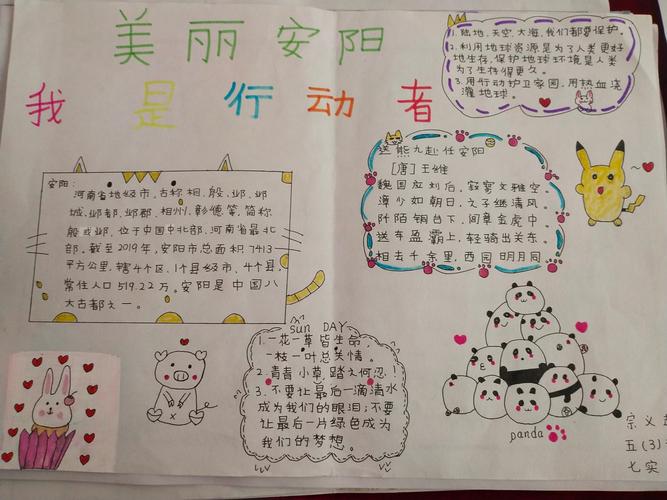 美丽安阳
我是行动者
1.陆地、天空、大海,我们都要保护。
2.利用地球资源是为了人类更好
地生存,保护地球环境是人类
为了生存得更久。
3.用行动护卫家园,用热血浇
灌地球。
安阳:
河南省地级市,古称相、殷、邺、邺
城、邺都、邺郡、相州、彰德等,简称
殷或邺,位于中国中北部,河南省最北
部。截至2019年,安阳市总面积7413
平方公里,辖4个区、1个县级市、4个县,
常住人口519.22万。安阳是中国八
大古都之一。
送熊九赴任安阳
[唐]王维
魏国应刘后,寂寥文雅空。
漳河如旧日,之子继清风。
阡陌铜台下,闾阎金虎中。
送车盈灞上,轻骑出关东。
相去千余里,西园明月同。
sun DAY
1.一花一草皆生命,
一枝一叶总关情。
2.青青小草,踏之何忍!
3.不要让最后一滴清水
成为我们的眼泪;不要
让最后一片绿色成为
我们的梦想。
panda
宗义
五(3)
七实